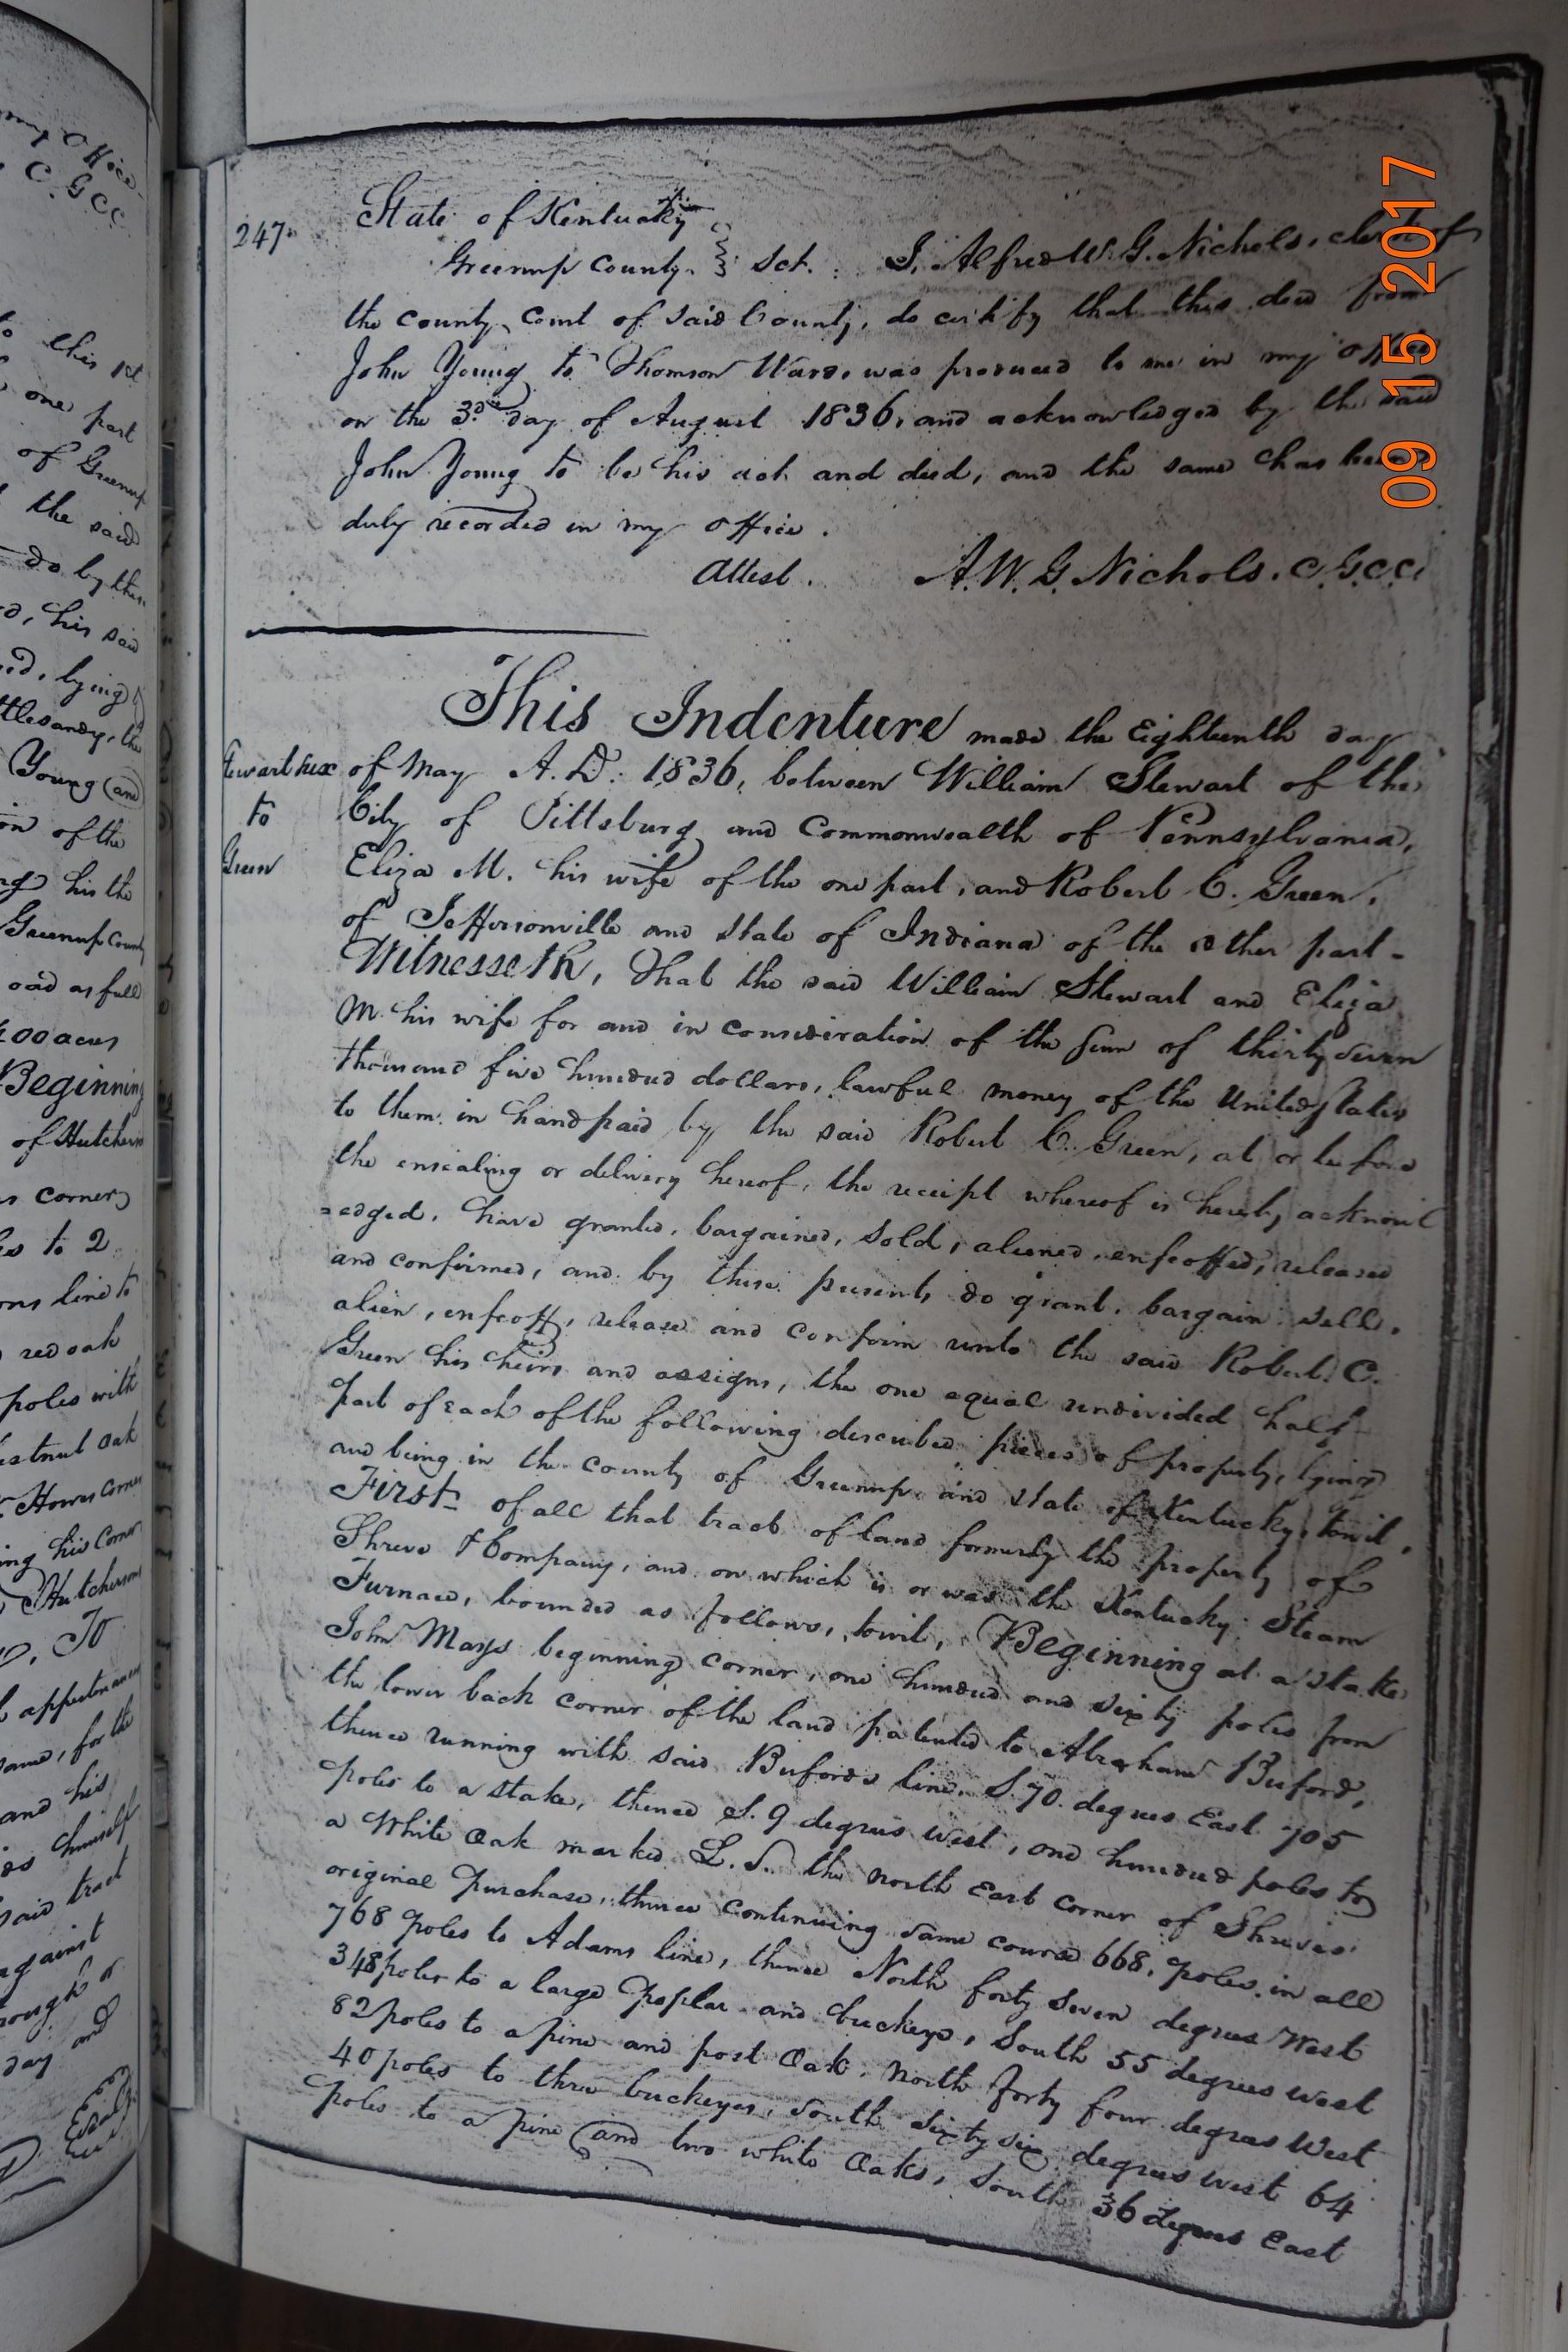 my Office
C. G C C.
this 1st
one part
of Greenup
the said
do by these
his said
lying
Young and
on of the
his the
Greenup County
oad as full
400 acres
Beginning
of Hutchersons
corner
to 2
line to
red oak
poles with
estnut Oak
Howes Corner
ing his Corner
Hutchersons
To
appertenances
same, for the
and his
himself
said tract
against
day and
247.
State of Kentucky
Greenup County. } Sct. I. Alfred W. G. Nichols, clerk of
the county Court of said County, do certify that this deed from
John Young to Thomson Ward, was produced to me in my office
on the 3d day of August 1836, and acknowledged by the said
John Young to be his act and deed, and the same has been
duly recorded in my office.
Attest. A. W. G. Nichols. C. G. C. C.
This Indenture made the Eighteenth day
Stewart & ux
to
Green
of May A.D. 1836, between William Stewart of the
City of Pittsburg and Commonwealth of Pennsylvania,
Eliza M. his wife of the one part, and Robert C. Green.
of Jeffersonville and state of Indiana of the other part-
Witnesseth, that the said William Stewart and Eliza
M. his wife for and in consideration of the sum of thirty seven
thousand five hundred dollars, lawful money of the United States
to them in hand paid by the said Robert C. Green, at or before
the ensealing or delivery hereof, the receipt whereof is hereby acknowl
=edged, have granted, bargained, sold, aliened, enfeoffed, released
and confirmed, and by these presents do grant, bargain sell.
alien, enfeoff, release and confirm unto the said Robert C.
Green his heirs and assigns, the one equal undivided half
part of each of the following described pieces of property, lying
and being in the county of Greenup and state of Kentucky, towit,
First of all that tract of land formerly the property of
Shreve & Company, and on which is or was the Kentucky Steam
Furnace, bounded as follows, towit, Beginning at a stake
John Mays beginning corner, one hundred and sixty poles from
the lower back corner of the land patented to Abraham Buford,
thence running with said Bufords line S. 70. degrees East 705
poles to a stake, thence S. 9 degrees west, one hundred poles to
a White Oak marked L. S. the north East corner of Shreves
original Purchase, thence continuing same course 668. poles, in all
768 poles to Adams line, thence North forty seven degrees West
348 poles to a large Poplar and buckeye, South 55 degrees west
82 poles to a pine and post Oak, North forty four degrees West
40 poles to three buckeyes, South sixty six degrees west 64
poles to a pine and two white Oaks, South 36 degrees East
09 15 2017